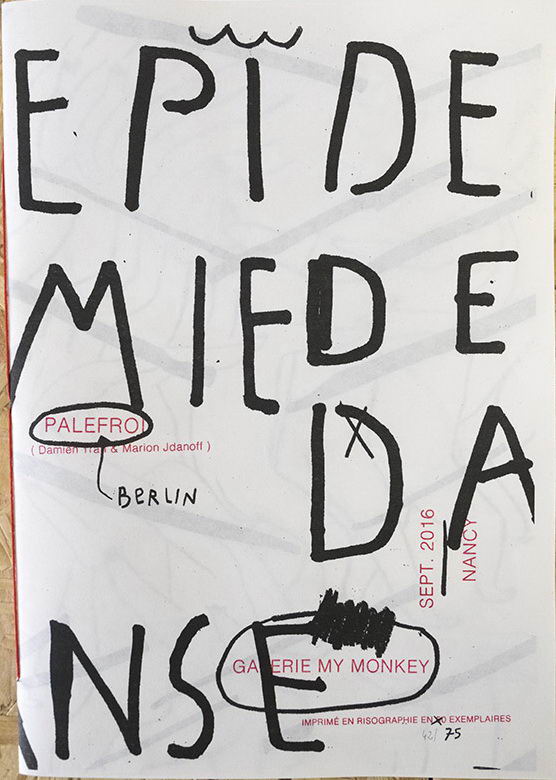 EPÏDE
MIE DE
PALEFROI
( Damien Tran & Marion Jdanoff )
BERLIN
DA
SEPT. 2016
NANCY
NSE
GALERIE MY MONKEY
IMPRIMÉ EN RISOGRAPHIE EN X0 EXEMPLAIRES
42/ 75